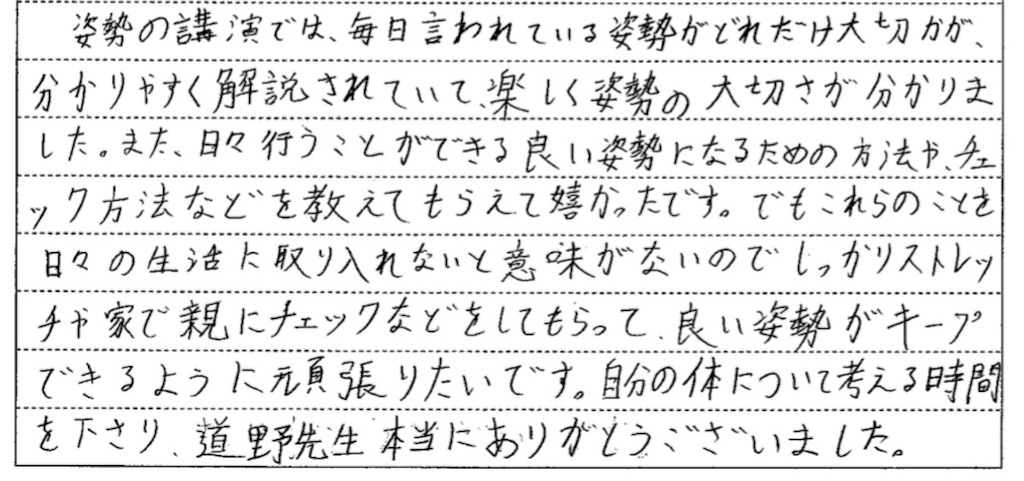 姿勢の講演では、毎日言われている姿勢がどれだけ大切かが、
分かりやすく解説されていて、楽しく姿勢の大切さが分かりま
した。また、日々行うことができる良い姿勢になるための方法や、チェ
ック方法などを教えてもらえて嬉かったです。でもこれらのことを
日々の生活に取り入れないと意味がないのでしっかりストレッ
チや家で親にチェックなどをしてもらって、良い姿勢がキープ
できるように頑張りたいです。自分の体について考える時間
を下さり、道野先生本当にありがとうございました。